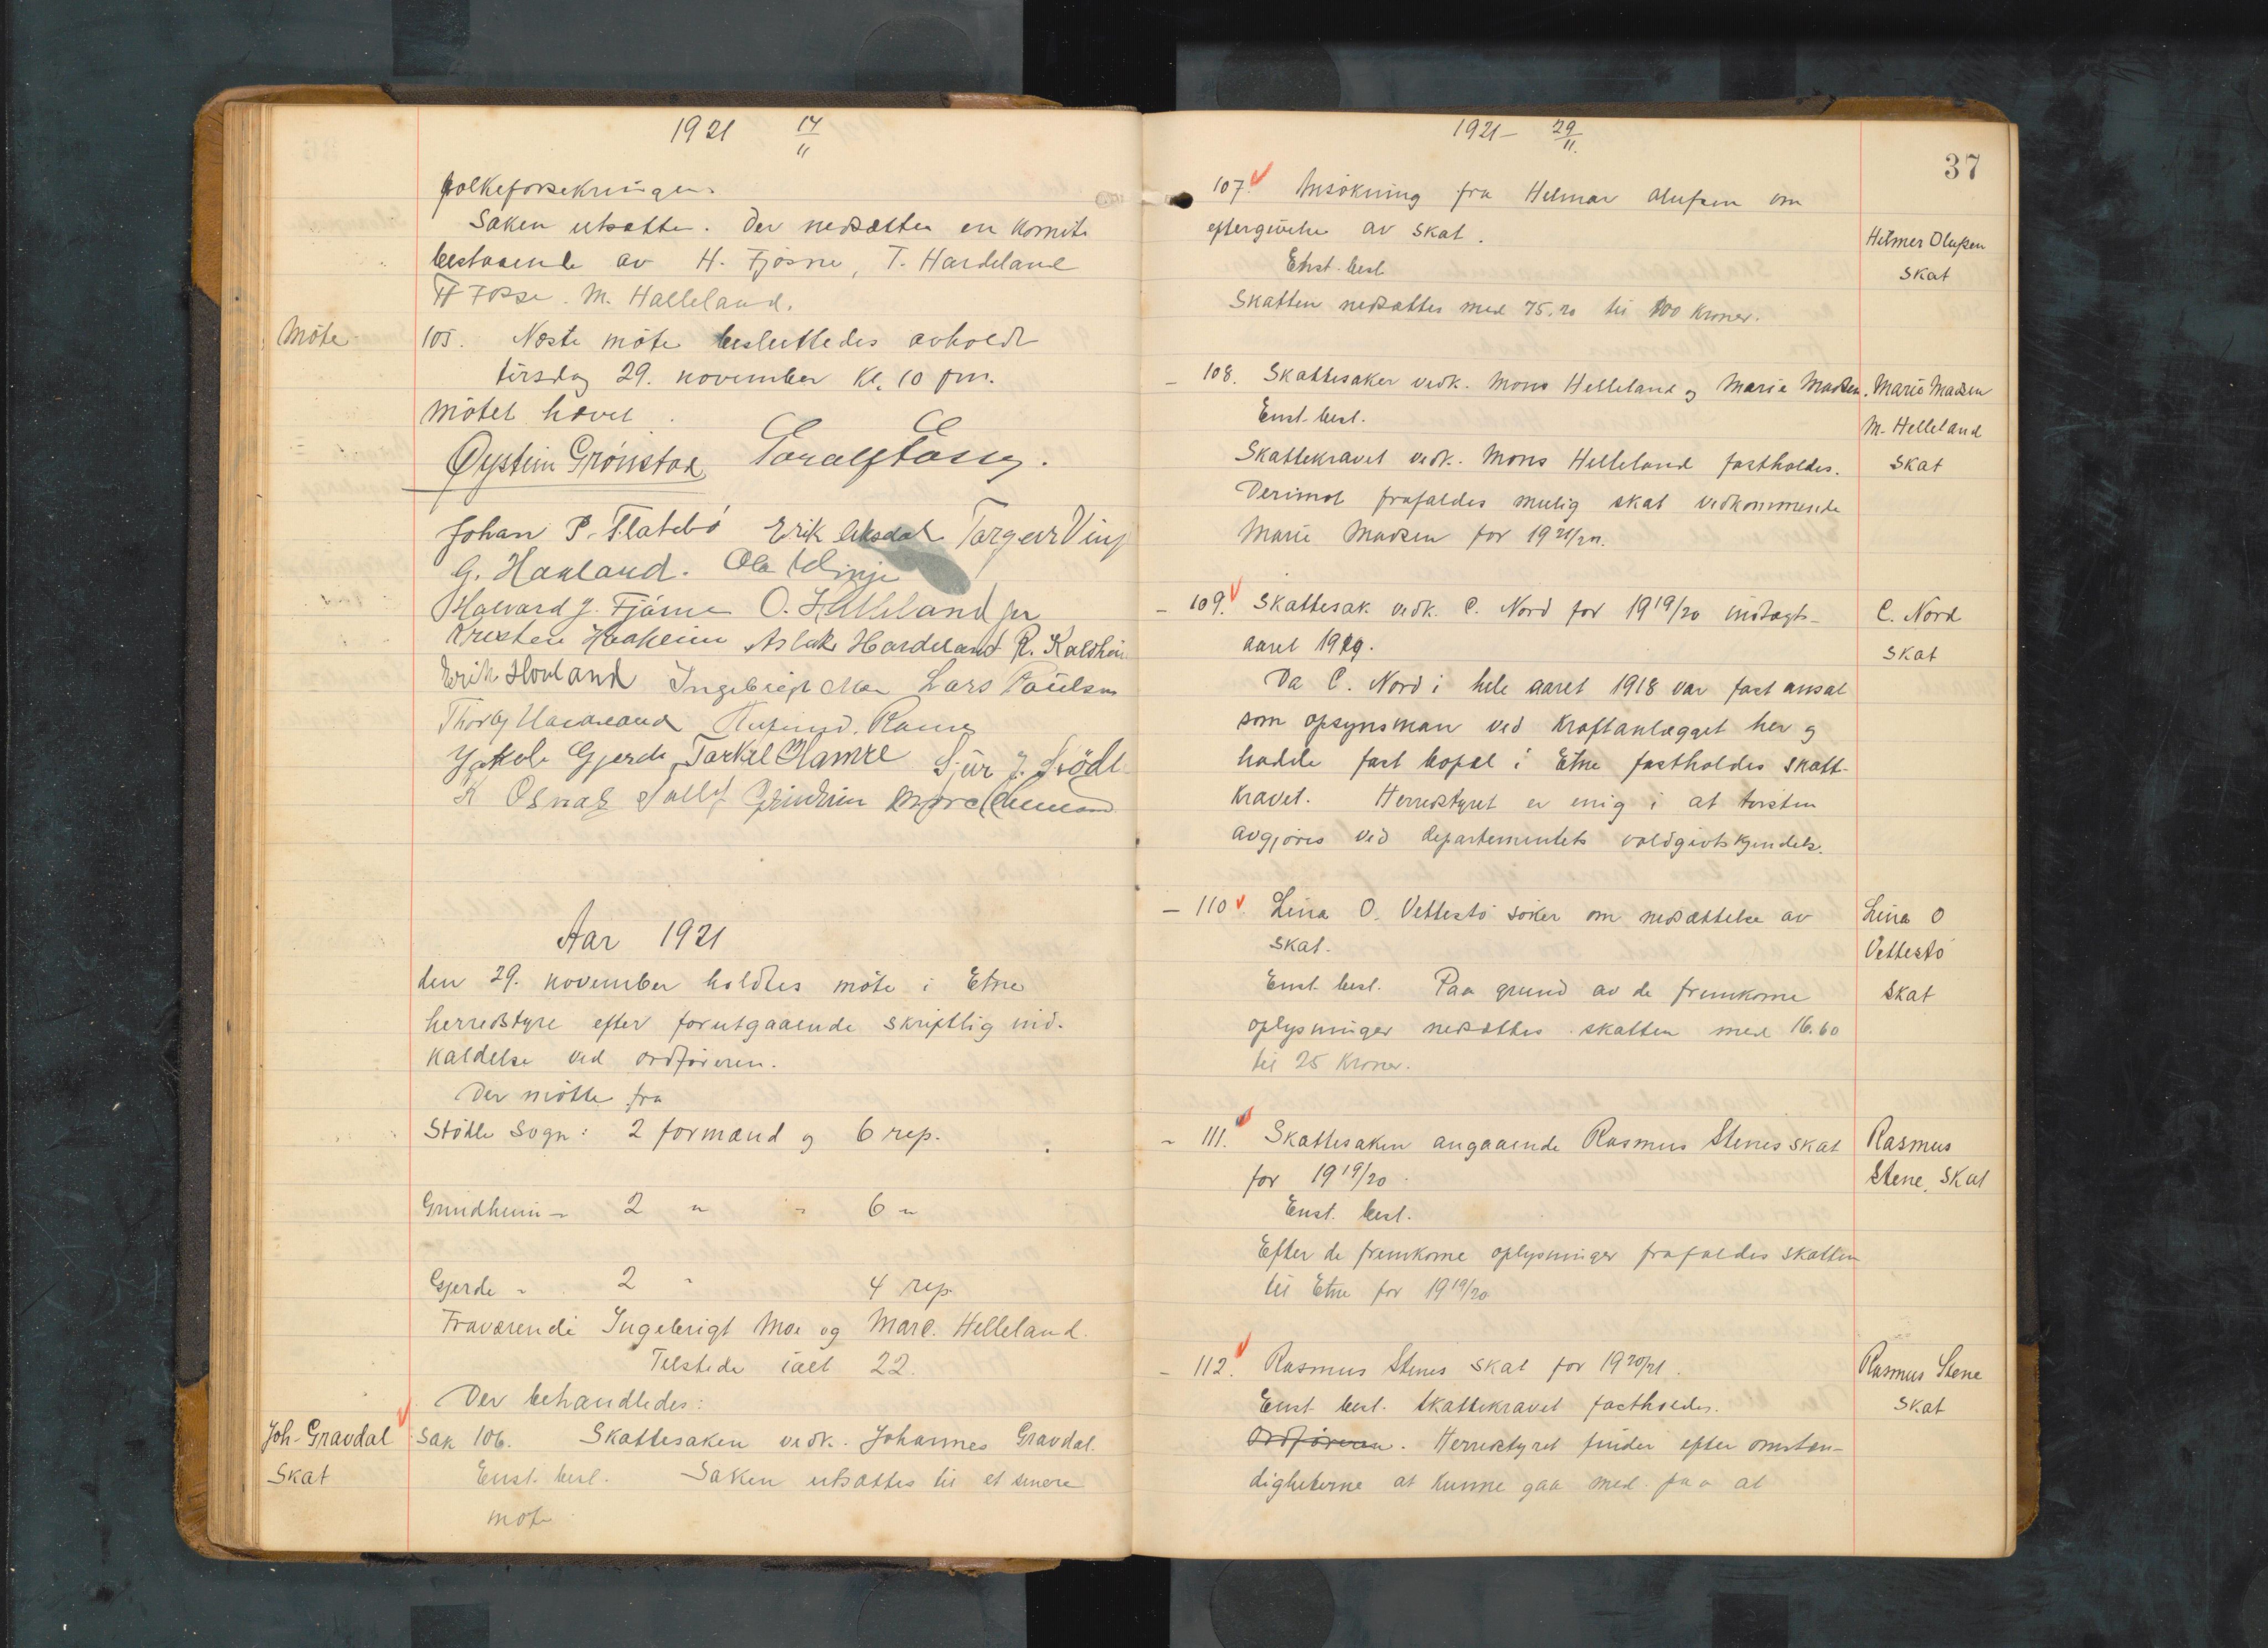 1921 14/11
folkeforsekringen.
Saken utsættes. Der nedsættes en komite
bestaaende av H. Fjösne, T. Hardeland
H Fosse. M. Halleland.
Möte
105. Næste möte besluttedes avholdt
tirsdag 29. november kl. 10 fm.
Mötet hævet.
Øystein Grönstad
Johan P. Flatebö Erik Aksdal Torgeir Vinje
G. Hauland. Ola Vinje
Halvard J. Fjösne O. Helleland jr
Kristen Haaheim Aslak Hardeland R. Kaldheim
Erik Hovland Ingebrigt Moe Lars Paulsen
Jakob Gjerde Torkel Hamre Sjur J. Stödle
K Osnes Grindheim
Aar 1921
den 29. november holdtes möte i Etne
herredstyre efter forutgaaende skriftlig ind-
kaldelse ved ordföreren.
Der mötte fra
Stödle Sogn: 2 formænd og 6 rep.
Grindheim " 2 " " 6 "
Gjerde " 2 " 4 rep.
Fraværende Ingebrigt Moe og Marc. Helleland.
Tilstede ialt 22.
Der behandledes:
Joh. Gravdal
Skat
Sak 106. Skattesaken vedk. Johannes Gravdal.
Enst. besl. Saken utsættes til et senere
möte
1921 – 29/11.
37
107. Ansökning fra Helmar Olufsen om
eftergivelse av skat.
Helmer Olufsen
Skat
Enst. besl.
Skatten nedsættes med 75,20 til 100 kroner.
– 108. Skattesaker vedk. Mons Helleland og Marie Madsen.
Marie Madsen
M. Helleland
Skat
Enst. besl.
Skattekravet vedk. Mons Helleland fastholdes.
Derimot frafaldes mulig skat vedkommende
Marie Madsen for 1921/22.
– 109. Skattesak vedk. C. Nord for 1919/20 indtægts-
aaret 1919.
C. Nord
Skat
Da C. Nord i hele aaret 1918 var fast ansat
som opsynsman ved Kraftanlægget her og
hadde fast bopæl i Etne fastholdes skatt-
kravet. Herredstyret er enig i at tvisten
avgjöres ved departementets voldgivtskjendelse.
– 110. Lina O. Vettestö söker om nedsættelse av
skat.
Lina O
Vettestö
Skat
Enst. besl. Paa grund av de fremkomne
oplysninger nedsættes skatten med 16.60
til 25 kroner.
– 111. Skattesaken angaaende Rasmus Stenes skat
for 1919/20.
Rasmus
Stene, Skat
Enst. besl.
Efter de fremkomne oplysninger frafaldes skatten
til Etne for 1919/20
– 112. Rasmus Stenes skat for 1920/21.
Rasmus Stene
Skat
Enst. besl. Skattekravet fastholdes.
Ordföreren. Herredstyret finder efter omstæn-
digheterne at kunne gaa med paa at